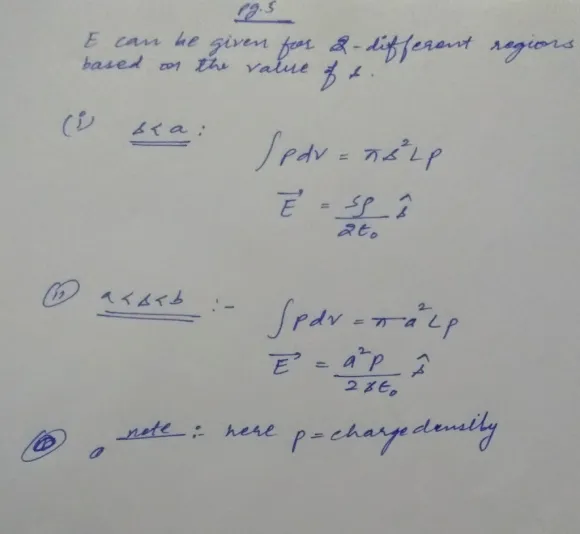 pg.5
E can be given for 2-different regions
based on the value of s.
(i) s<a :
∫ρdv = πs²Lρ
E⃗ = sρ/2ε₀ ŝ
(ii) a<s<b :-
∫ρdv = πa²Lρ
E⃗ = a²ρ/2sε₀ ŝ
note :- here ρ = charge density